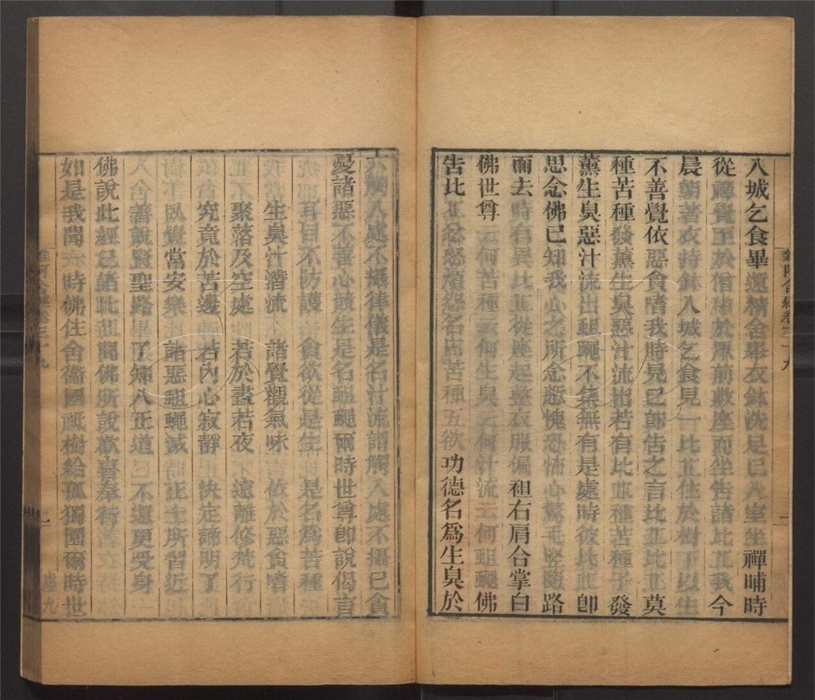 入城乞食畢還精舍舉衣鉢洗足已入室坐禪晡時
從禪覺至於僧中於眾前敷座而坐告諸比丘我今
晨朝著衣持鉢入城乞食見一比丘住於樹下以生
不善覺依惡貪嗜我時見已即告之言比丘比丘莫
種苦種發薰生臭惡汁流出若有比丘種苦種子發
薰生臭惡汁流出蛆蠅不集無有是處時彼比丘即
思念佛已知我心之所念慚愧恐怖心驚毛竪隨路
而去時有異比丘從座起整衣服偏袒右肩合掌白
佛世尊云何苦種云何生臭云何汁流云何蛆蠅佛
告比丘忿怒煩怨名曰苦種五欲功德名為生臭於
六觸入處不攝律儀是名汁流謂觸入處不攝已貪
憂諸惡不善心競生是名蛆蠅爾時世尊即說偈言
耳目不防護 貪欲從是生 是名為苦種
生臭汁潛流 諸覺觀氣味 依於惡貪嗜
聚落及空處 若於晝若夜 遠離修梵行
究竟於苦邊 若內心寂靜 決定諦明了
臥覺常安樂 諸惡蛆蠅滅 正士所習近
善說賢聖路 了知八正道 不還更受身
佛說此經已諸比丘聞佛所說歡喜奉行
如是我聞一時佛住舍衛國祇樹給孤獨園爾時世